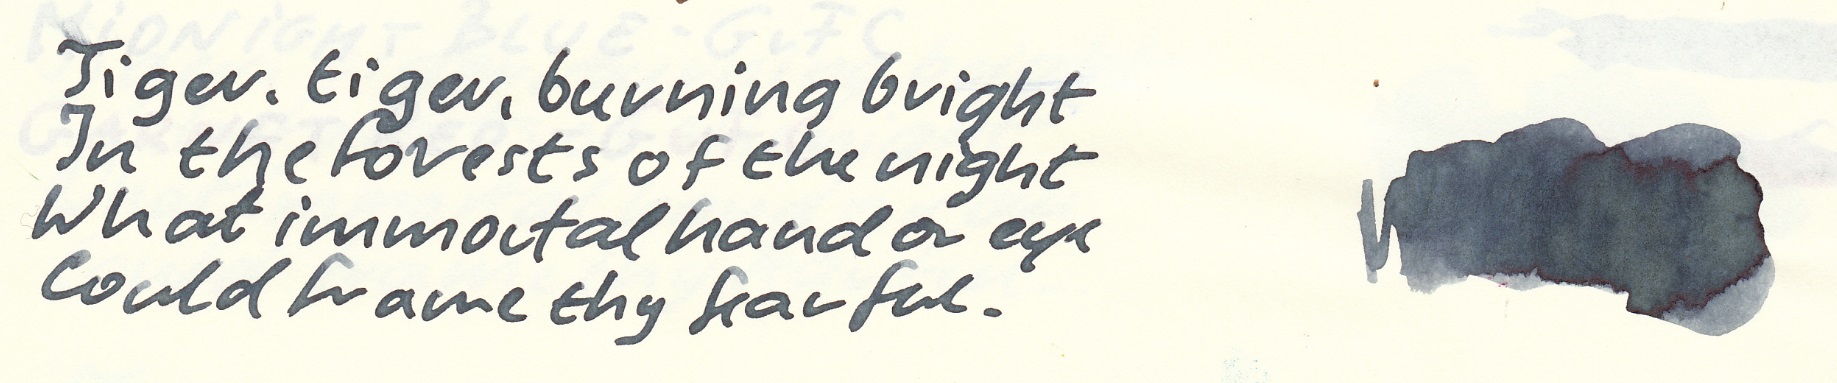 MiDNiGHT BLUE - G.F.C
Tiger, tiger, burning bright
In the forests of the night
What immortal hand or eye
Could frame thy fearful.